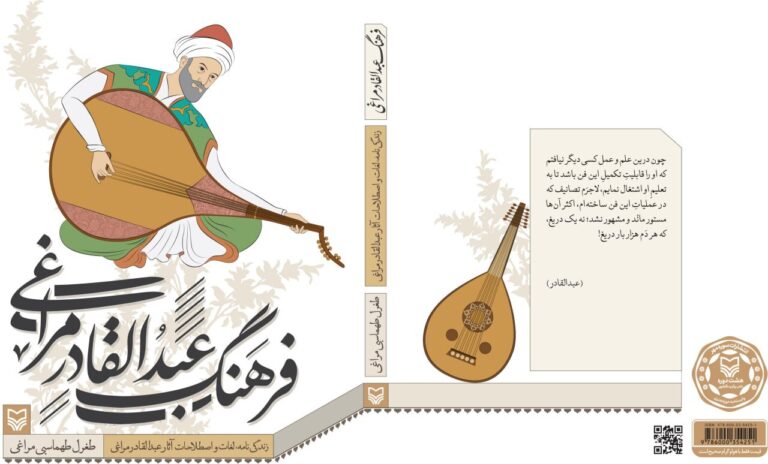 فرهنگ عبدالقادر مراغی
زندگی‌نامه، لغات و اصطلاحات آثار عبدالقادر مراغی
طغرل طهماسبی مراغی
فرهنگ عبدالقادر مراغی
زندگی‌نامه، لغات و اصطلاحات آثار عبدالقادر مراغی
طغرل طهماسبی مراغی
چون درین علم و عمل کسی دیگر نیافتم
که او را قابلیتِ تکمیلِ این فن باشد تا به
تعلیمِ او اشتغال نمایم، لاجرَم تصانیف که
در عملیاتِ این فن ساخته‌ام، اکثر آن‌ها
مستور مانْد و مشهور نشد؛ نه یک دریغ،
که هر دَم هزار بار دریغ!
(عبدالقادر)
انتشارات سوره مهر
هشت دوره
ISBN: 978-600-03-5425-1
9786000354251